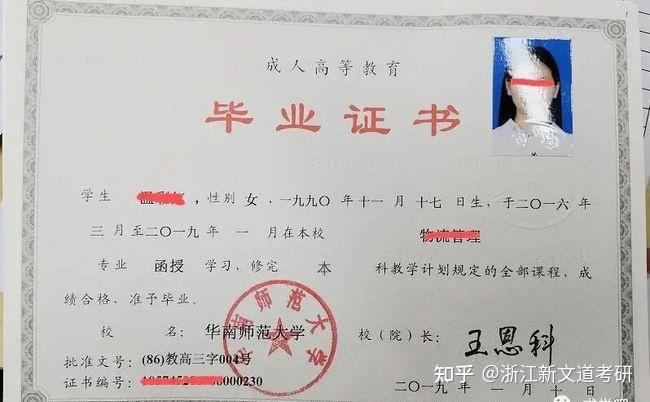 成人高等教育
毕业证书
学生 ，性别 女 ，一九九〇 年 十一 月 十七 日生，于二〇一六 年
三 月至二〇一九 年 一 月在本校
专业 函授 学习，修完 本 科教学计划规定的全部课程，成
绩合格，准予毕业。
校 名：华南师范大学 校（院）长：王恩科
批准文号：(86)教高三字004号
证书编号： 000230
二〇一九 年 一 月 十 日
华南师范大学
知乎 @浙江新文道考研